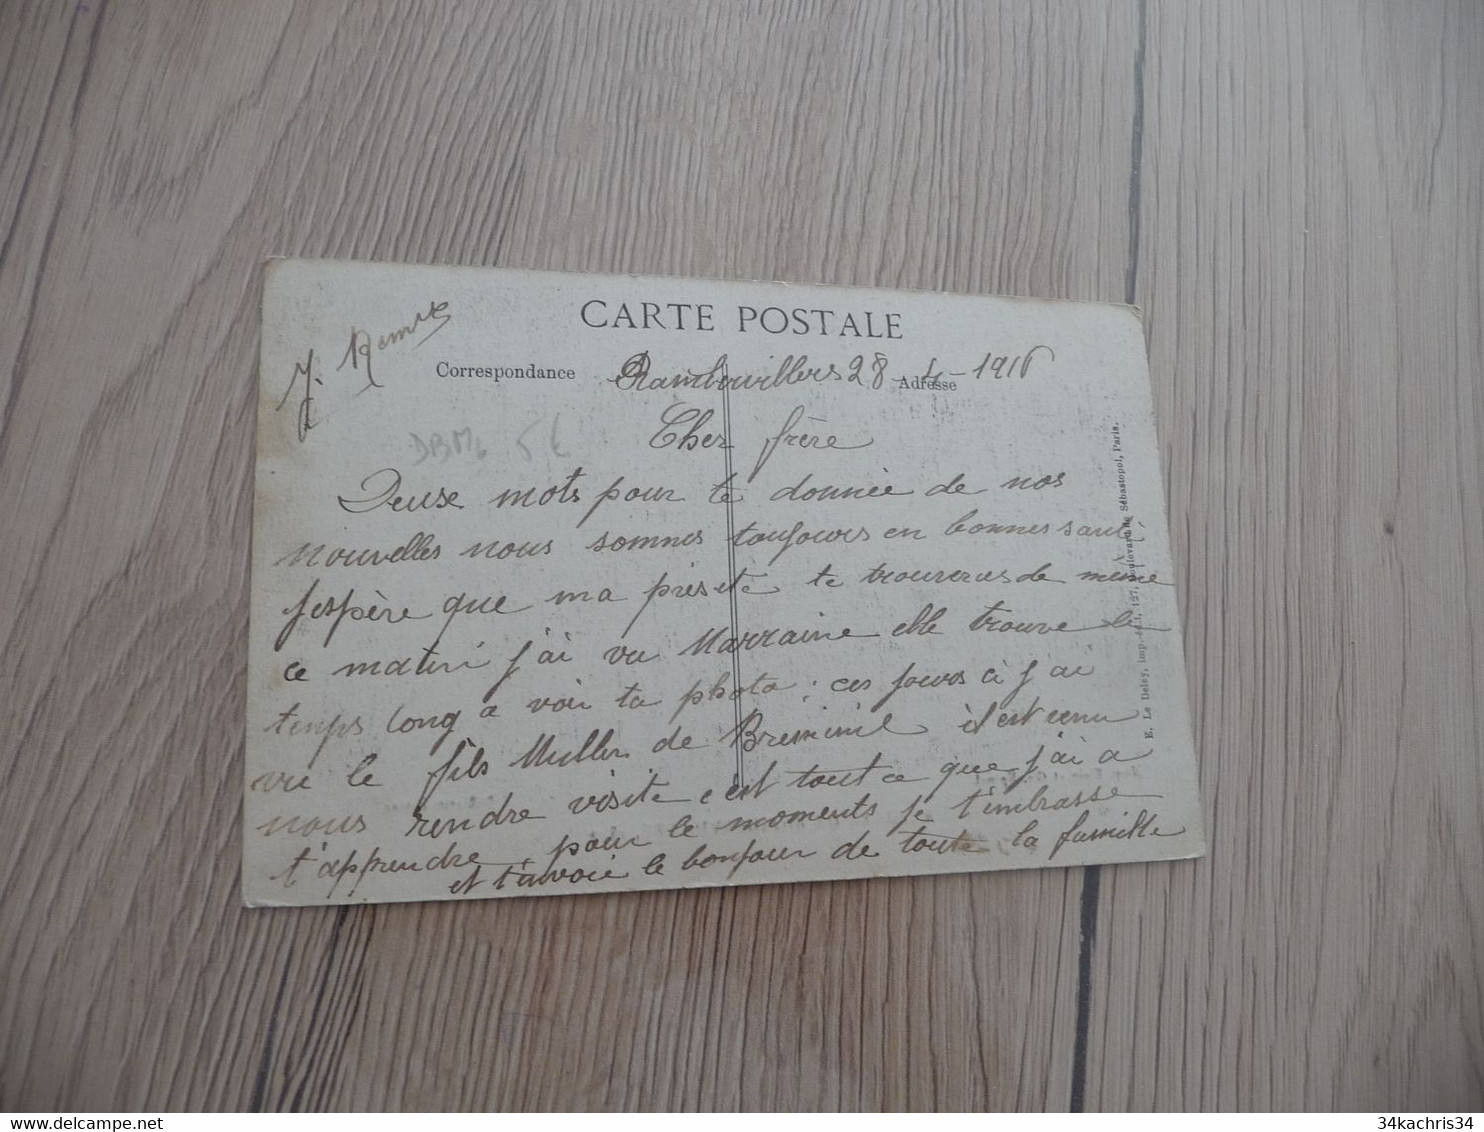 CARTE POSTALE
Correspondance
Adresse
Rambervillers 28-4-1916
J.
DBM6 5€
Cher frère
Deuse mots pour te donnée de nos
nouvelles nous sommes toujours en bonnes santé
j'espère que ma présite te trouveras de meme
ce matin j'ai vu Marraine elle trouve le
temps long a voir ta photo; ces jours ci j'ai
vu le fils Muller de Breminil il est venu
nous rendre visite c'est tout ce que j'ai a
t'apprendre pour le moments je t'imbrasse
et t'avoie le bonjour de toute la famille
E. Le Deley, imp.-édit., 127, boulevard de Sébastopol, Paris.
delcampe.net
34kachris34